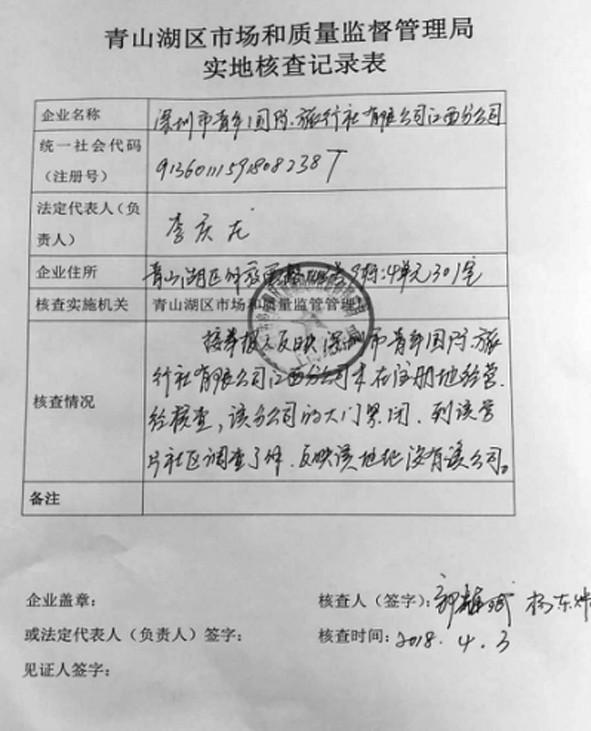 青山湖区市场和质量监督管理局
实地核查记录表
企业名称
深圳市青年国际旅行社有限公司江西分公司
统一社会代码
(注册号)
91360111591808238T
法定代表人(负
责人)
李庆龙
企业住所
青山湖区 4单元301室
核查实施机关
青山湖区市场和质量监管管理局
核查情况
接举报人反映深圳市青年国际旅
行社有限公司江西分公司未在注册地经营.
经核查,该分公司的大门紧闭.到该管
片社区调查了解.反映该地址没有该公司。
备注
企业盖章:
核查人(签字):
或法定代表人(负责人)签字:
核查时间:2018.4.3
见证人签字: